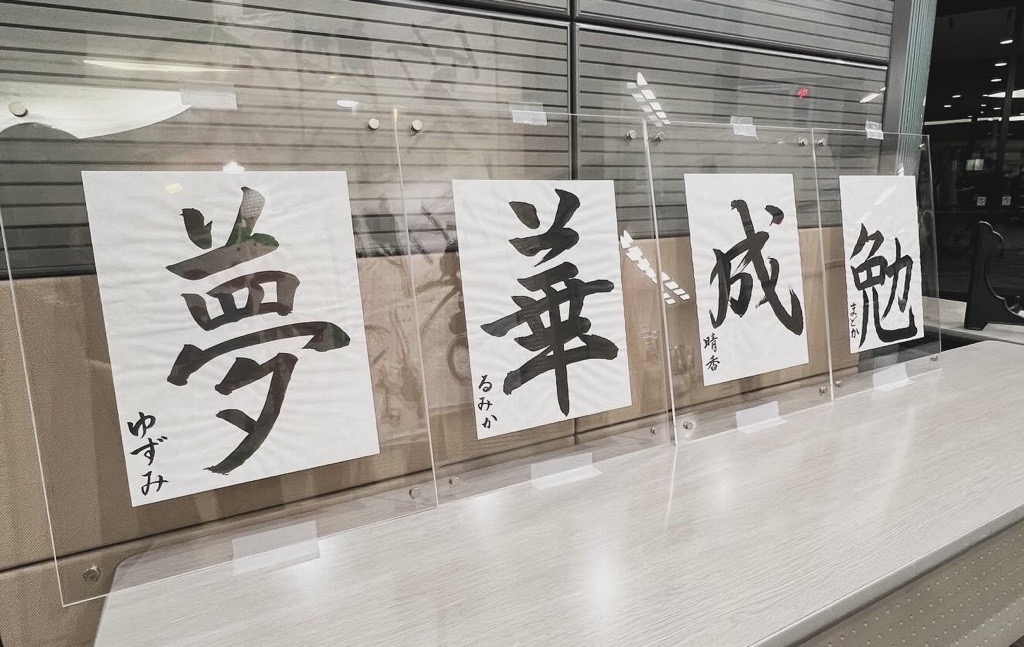 夢
ゆずみ
華
るみか
成
晴香
勉
まどか